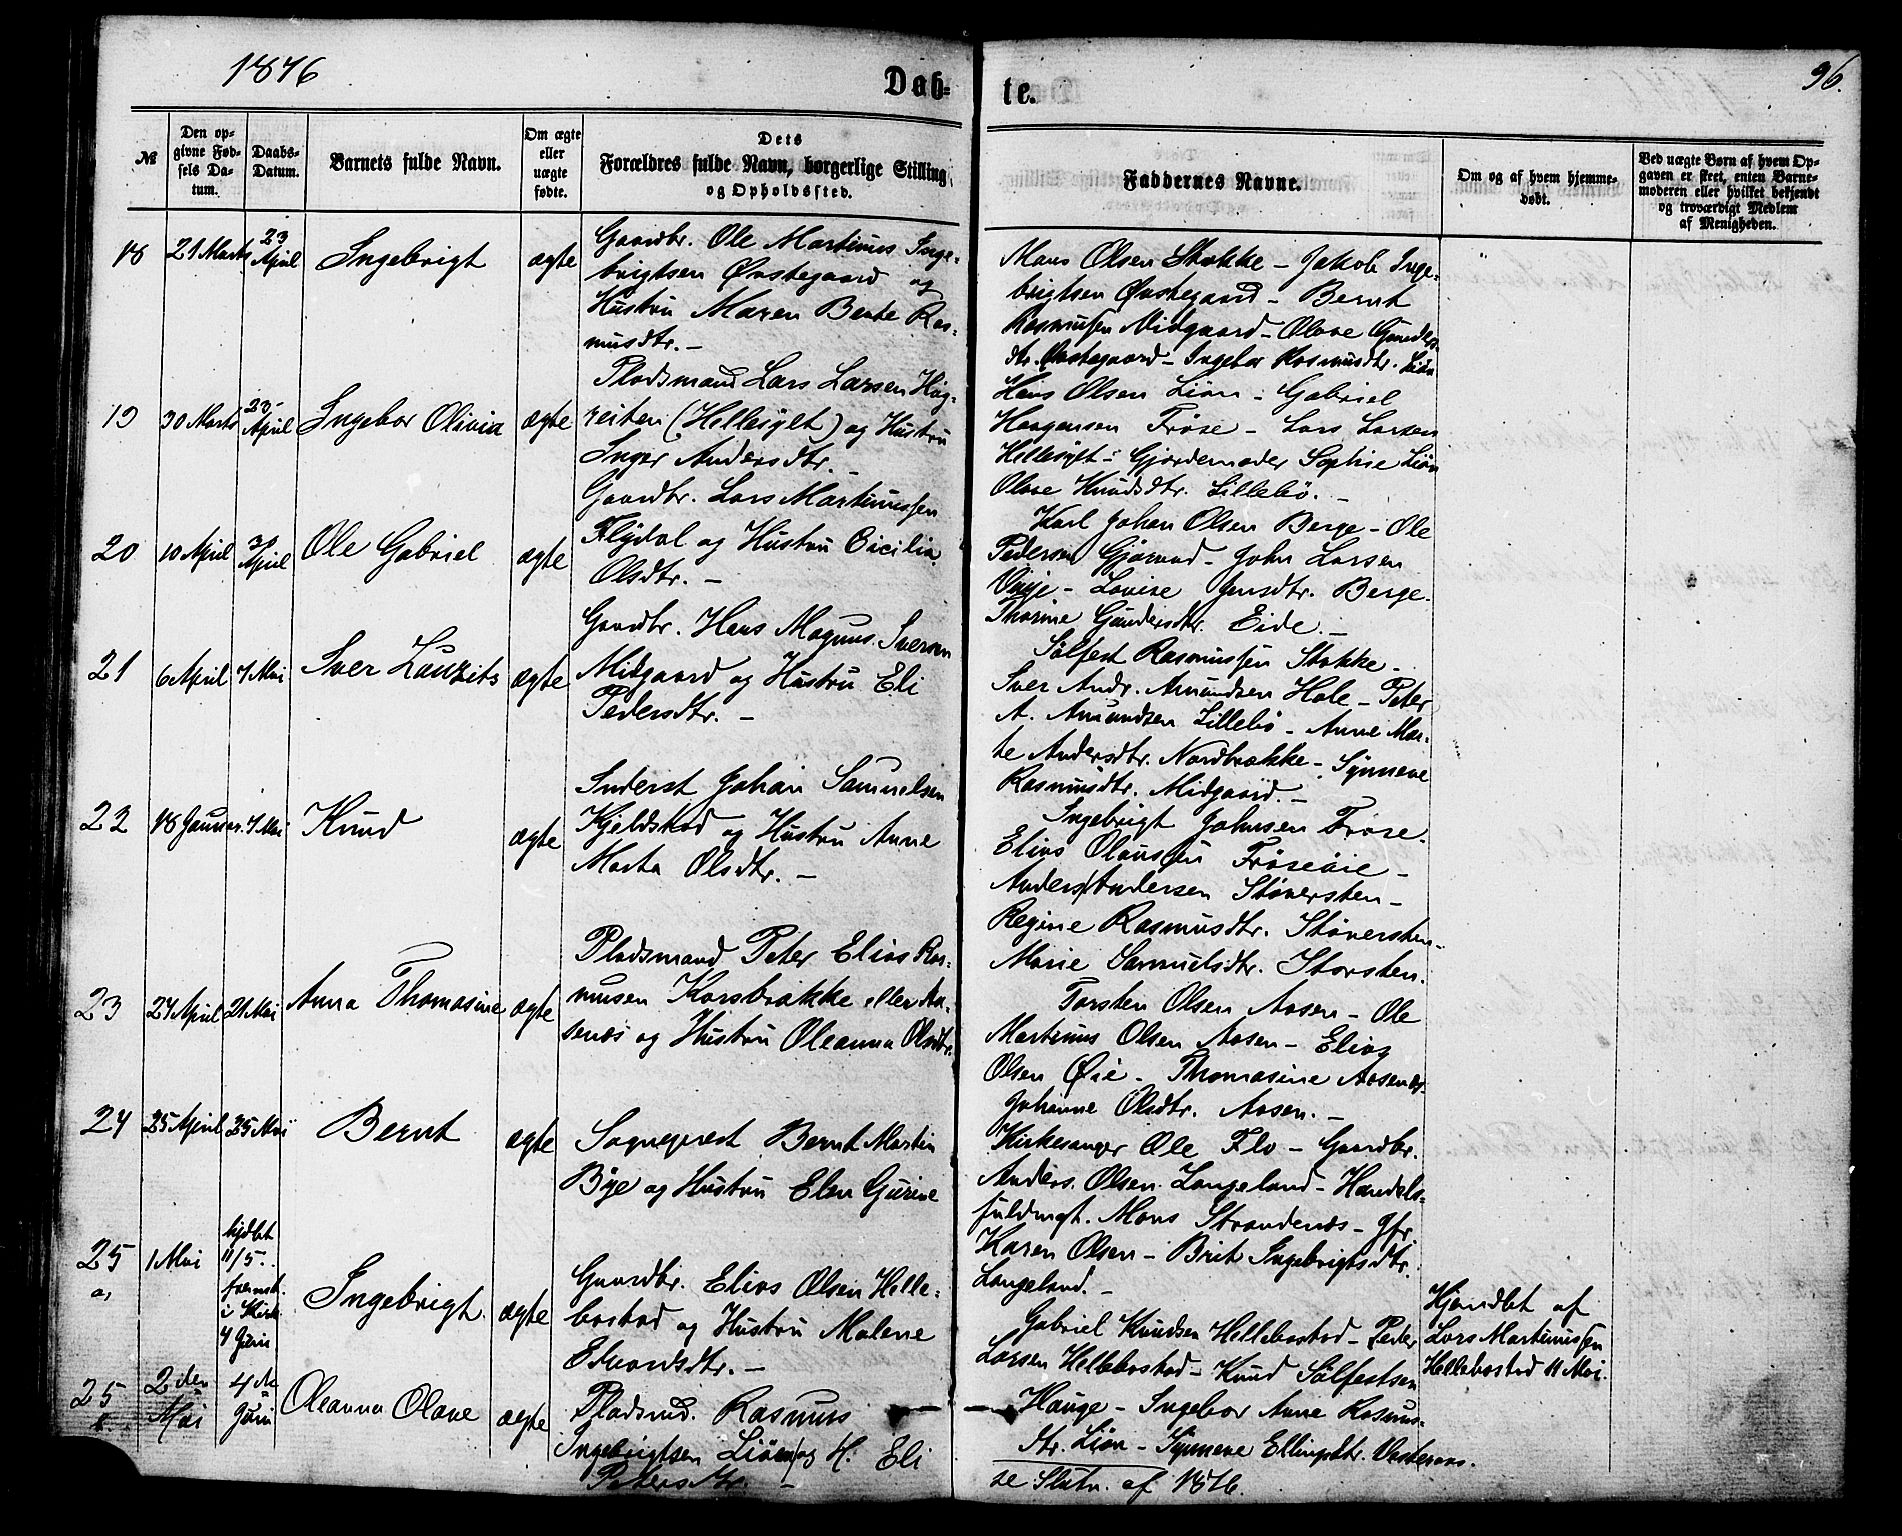 1876
Dab=
te.
96.
№
Den op=
givne Fød=
sels Da=
tum.
Daabs=
Datum.
Barnets fulde Navn.
Om ægte
eller
uægte
fødte.
Dets
Forældres fulde Navn, borgerlige Stilling
og Opholdssted.
Faddernes Navne.
Om og af hvem hjemme=
døbt.
Ved uægte Børn af hvem Op=
gaven er skeet, enten Barne=
moderen eller hvilket bekjendt
og troværdigt Medlem
af Menigheden.
18
21 Marts
23
April
Ingebrigt
ægte
Gaardbr. Ole Martinus Inge-
brigtsen Øvstegaard og
Hustru Maren Bente Ras-
musdtr. –
Mons Olsen Stokke – Jakob Inge-
brigtsen Øvstegaard – Bernt
Rasmussen Midgaard – Olave Gunders
dtr. Øvstegaard – Ingebor Rasmusdtr. Liøn
19
30 Marts
23
April
Ingebor Olivia
ægte
Pladsmand Lars Larsen Haug-
reiten (Hellesylt) og Hustru
Inger Andersdtr. –
Hans Olsen Liøn – Gabriel
Haagensen Frøse – Lars Larsen
Hellesylt – Gjordemoder Sophie Liøn
Olave Knudsdtr. Lillebø. –
20
10 April
30
April
Ole Gabriel
ægte
Gaardbr. Lars Martinussen
Flydal og Hustru Cicilia
Olsdtr. –
Karl Johan Olsen Berge – Ole
Pedersen Gjærund – John Larsen
Vinje – Lovise Jensdtr. Berge –
Thorine Gundersdtr. Eide. –
21
6 April
7 Mai
Iver Lauritz
ægte
Gaardbr. Hans Magnus Iversen
Midgaard og Hustru Eli
Pedersdtr. –
Sølfest Rasmussen Stokke –
Iver Andr. Amundsen Hole – Peter
A. Amundsen Lillebø – Anne Mar-
te Andersdtr. Nordbrække – Synneve
Rasmusdtr. Midgaard. –
22
18 Januar
7 Mai
Knud
ægte
Inderst Johan Samuelsen
Kjeldstad og Hustru Anne
Marta Olsdtr. –
Ingebrigt Johnsen Frøse –
Elias Olaussen Frøseøie –
Anders Andersen Støversten –
Regine Rasmusdtr. Støversten –
Marie Samuelsdtr. Storsten.
23
24 April
21 Mai
Anna Thomasine
ægte
Pladsmand Peter Elias Ras-
musen Korsbrække eller Aa-
senæs og Hustru Oleanna Olsdtr.
Torsten Olsen Aasen – Ole
Martinus Olsen Aasen – Elias
Olsen Øie – Thomasine Aasenæs
Johanne Olsdtr. Aasen. –
24
25 April
25 Mai
Bernt
ægte
Sogneprest Bernt Martin
Bye og Hustru Elen Gurine
Kirkesanger Ole Flo – Gaardbr.
Anders Olsen Langeland – Handels-
fuldmgt. Mons Strandenæs – Jfr.
Karen Olsen – Brit Ingebrigtsdtr.
Langeland. –
25
a,
1 Mai
hjdbt
11/5.
fremst.
i Kirk
4 Juni
Ingebrigt
ægte
Gaardbr. Elias Olsen Helle-
bostad og Hustru Malene
Edvardsdtr. –
Gabriel Knudsen Hellebostad – Peder
Larsen Hellebostad – Knud Sølfestsen
Hjemdbt af
Lars Martinussen
Hellebostad 11 Mai.
25
2 den
Mai
4 de
Juni
Oleanna Olave
ægte
Pladsmd. Rasmus
Ingebrigtsen Liøen og H. Eli
Petersdtr. –
Hauge – Ingebor Anne Rasmus-
dtr. Liøn – Synneve Ellingsdtr.
se Slutn. af 1876.